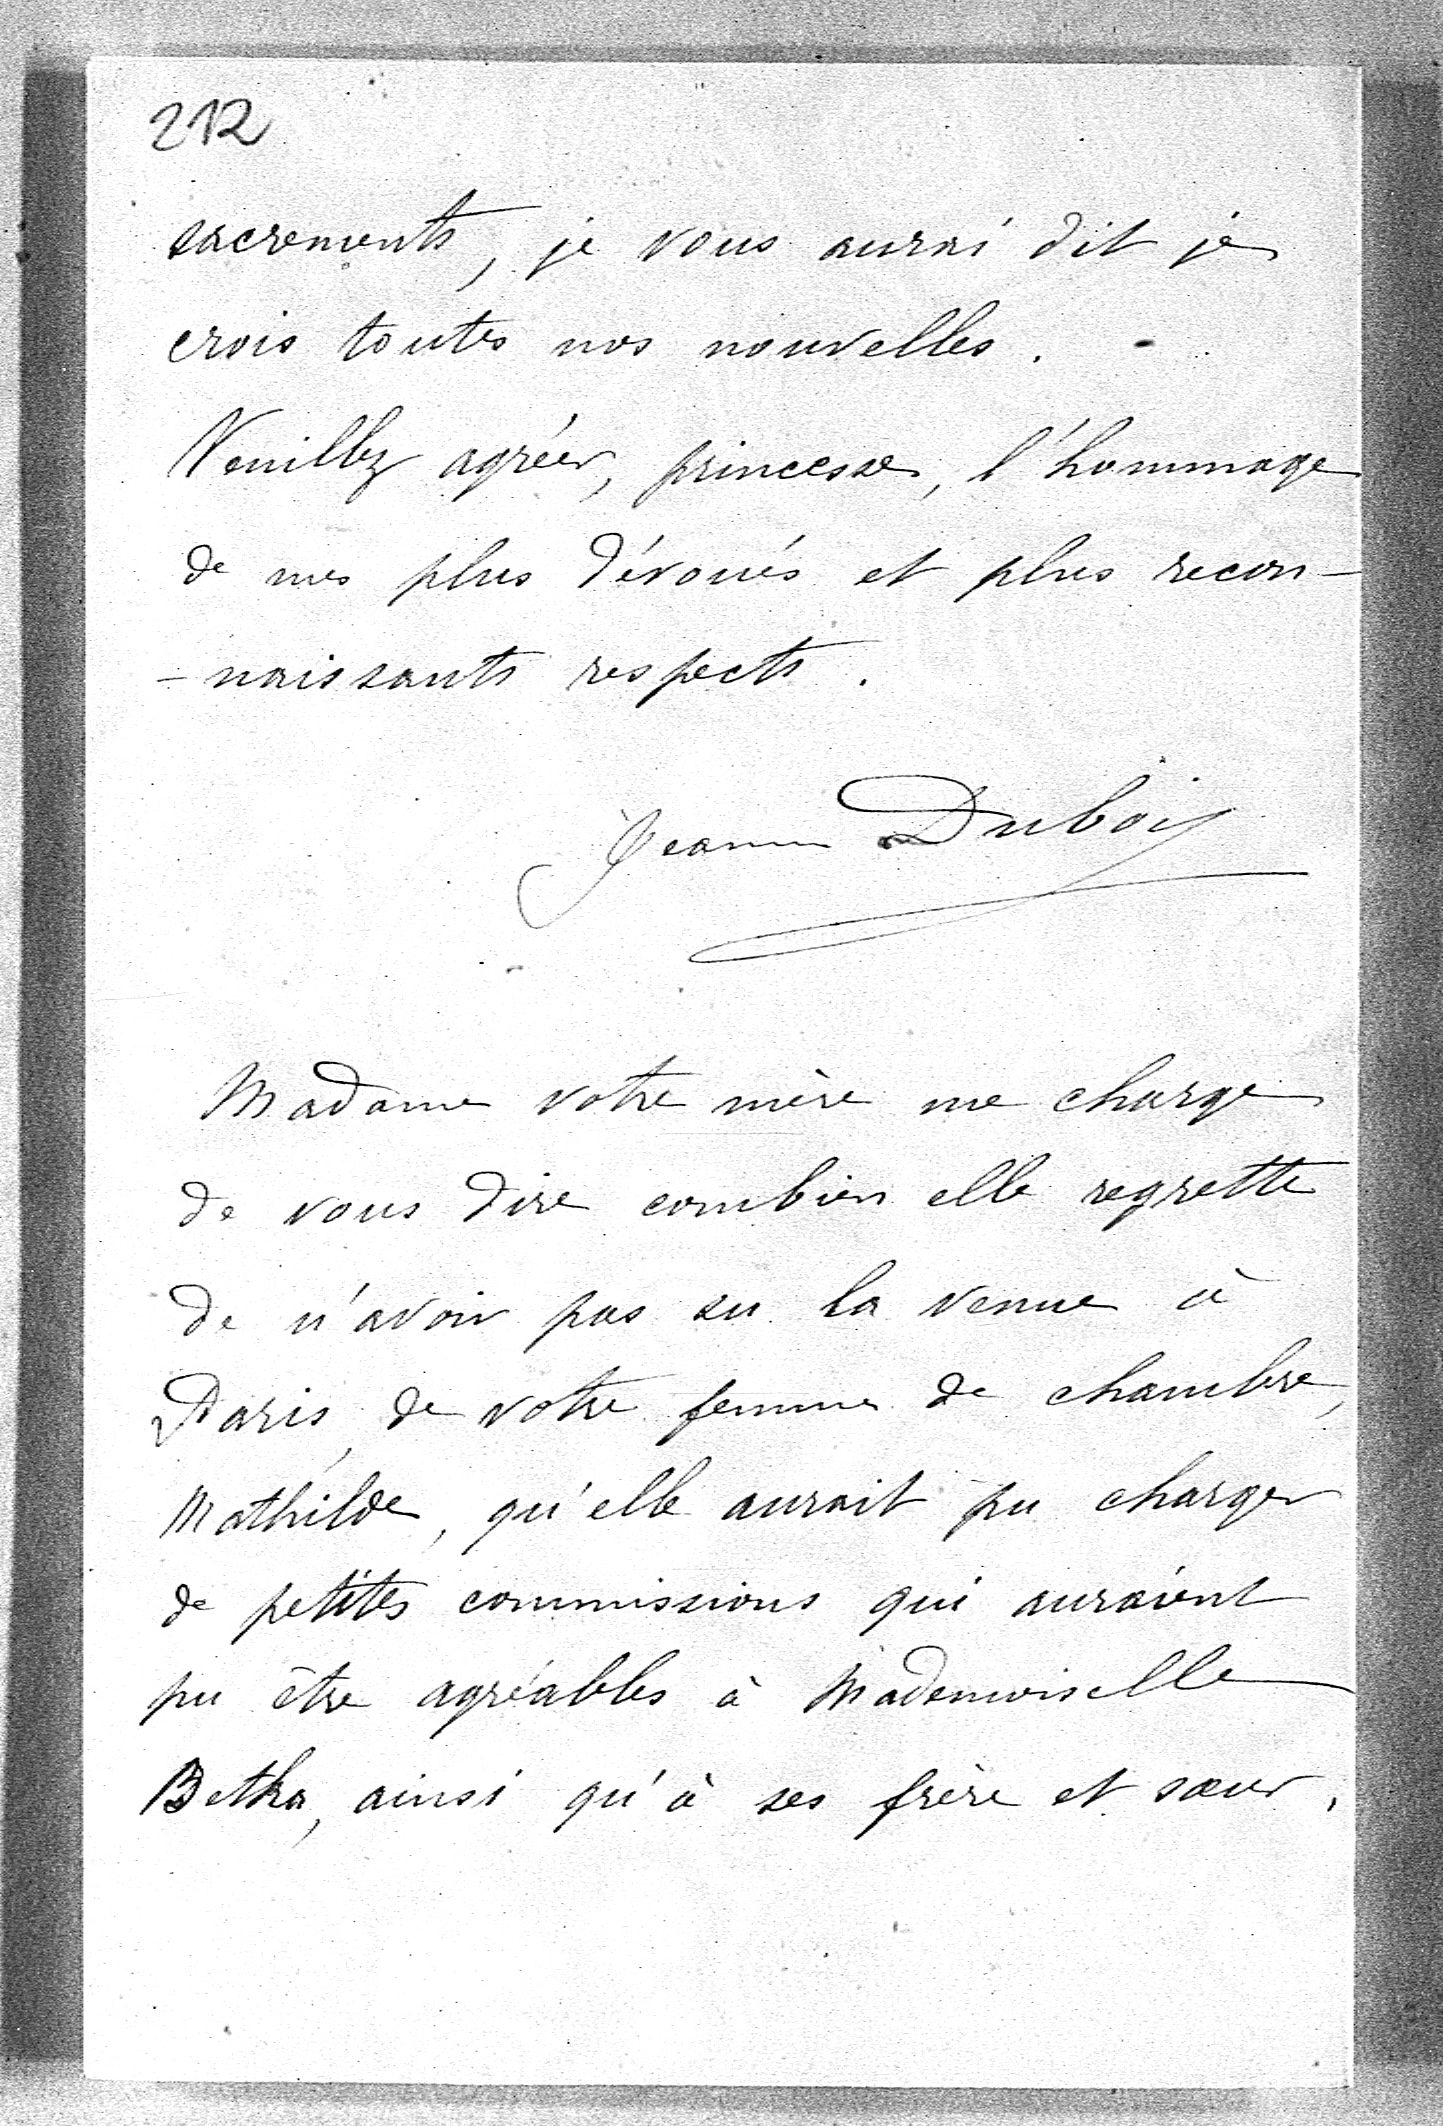 212
sacrements, je vous aurai dit je
crois toutes nos nouvelles.
Veuillez agréer, princesse, l'hommage
de mes plus dévoués et plus recon-
-naissants respects.
Jeanne Dubois
Madame votre mère me charge
de vous dire combien elle regrette
de n'avoir pas su la venue à
Paris, de votre femme de chambre,
Mathilde, qu'elle aurait pu charger
de petites commissions qui auraient
pu être agréables à Mademoiselle
Betka, ainsi qu'à ses frère et sœur.